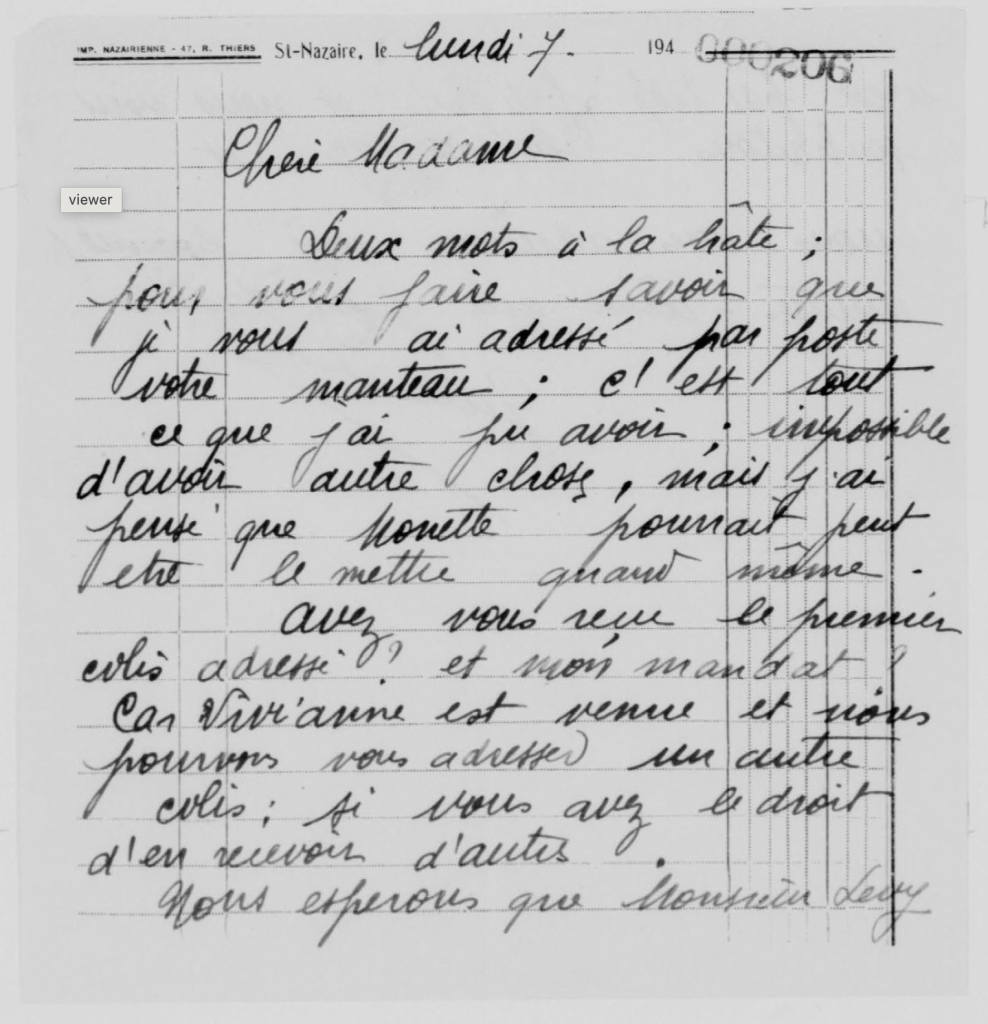 IMP. NAZAIRIENNE - 47, R. THIERS St-Nazaire, le lundi 7. 194 000206
Cheré Madame
viewer
Deux mots à la hâte ;
pour vous faire savoir que
je vous ai adressé par poste
votre manteau ; c'est tout
ce que j'ai pu avoir ; impossible
d'avoir autre chose, mais j'ai
pensé que Monette pourrait peut
etre le mettre quand même .
avez vous reçue le premier
colis adressé ? et mon mandat ?
Car Vivianne est venue et nous
pourrons vous adresser un autre
colis ; si vous avez le droit
d'en recevoir d'autres .
Nous esperons que Monsieur Levy